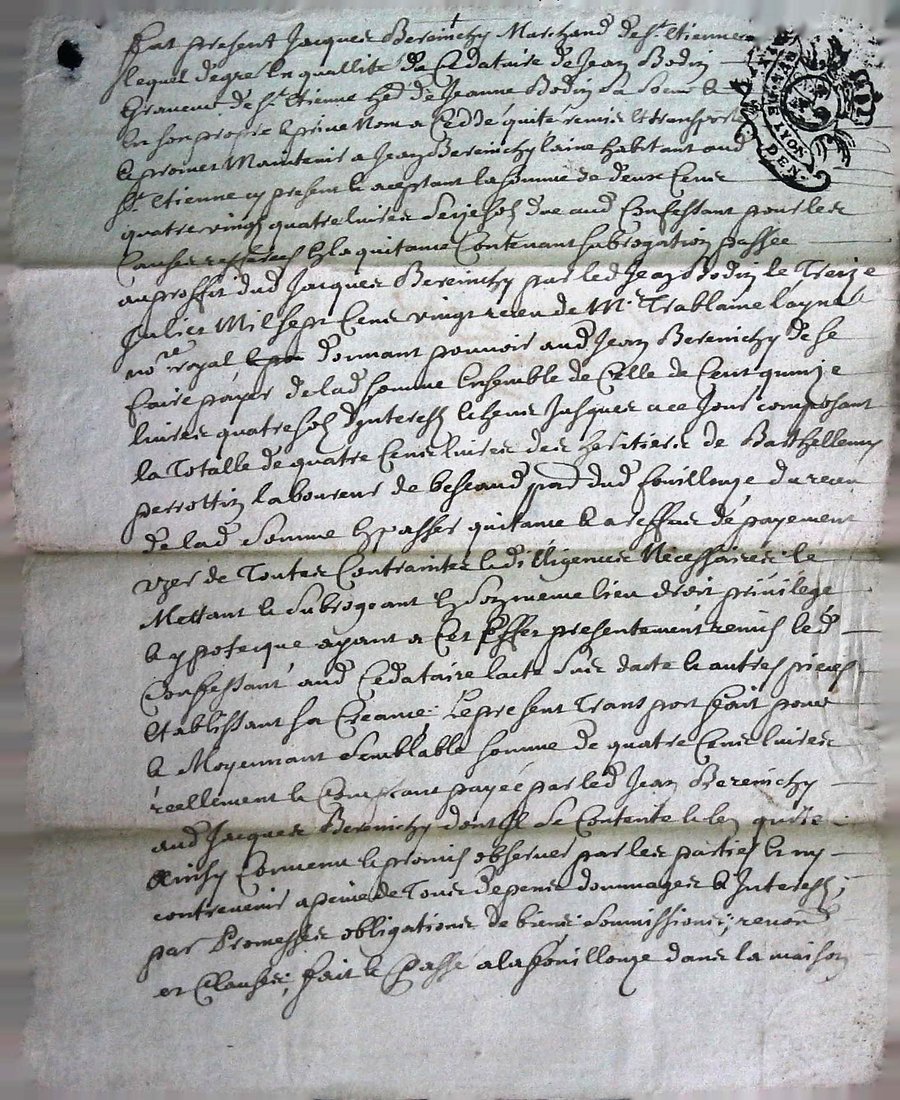 fut present Jacques Bereinchy Marchand de St Etienne
lequel de gre en quallité de Cedataire de Jean Bodin
Graveur de St Etienne hed de Jeanne Bodin sa soeur &
en son propre & prive Nom a Ceddé quité remis & transporté
& promet Maintenir a Jean Bereinchy laine habitant aud
St Etienne cy present & aceptant la somme de deux Cens
quatre vingt quatre livres seize sols due aud Confessant pour les
Causes & la quitance Contenant subrogation passée
au proffit dud Jacques Bereinchy par led Jean Bodin le Treize
Juliet Mil sept Cens vingt receu de Me Trablaine layné
nore royal donnant pouvoir aud Jean Bereinchy de se
faire payer de lad somme Ensemble de Celle de Cent quinze
livres quatre sols d'Interests Echeus Jusques a ce Jour composant
la Totalle de quatre Cens livres des heritiers de Barthellemy
perrottin laboureur de beseaud dud fouillouze du receu
de lad somme En passer quitance & a deffaut de payement
uzer de Toutes Contraintes & dilligences Necessaires le
Mettant & subrogeant En son meme lieu droit privilege
& ypoteque ayant a Cet Effet presentement remis led
Confessant aud Cedataire lacte sus datte & autres pieces
Etablissant sa Creance. Le present Transport fait pour
& Moyennant semblable somme de quatre Cens livres
reellement & Comptant payée par led Jean Bereinchy
aud Jacques Bereinchy dont il se Contente & len quitte
Ainsy Convenu & promis observer par les parties & ny
contrevenir a peine de Tous depens dommages & Interests,
par Promesses obligations de biens soumissions, renon
et Clauses, fait & Passé a la fouillouze dans la maison
LYON
DEN.